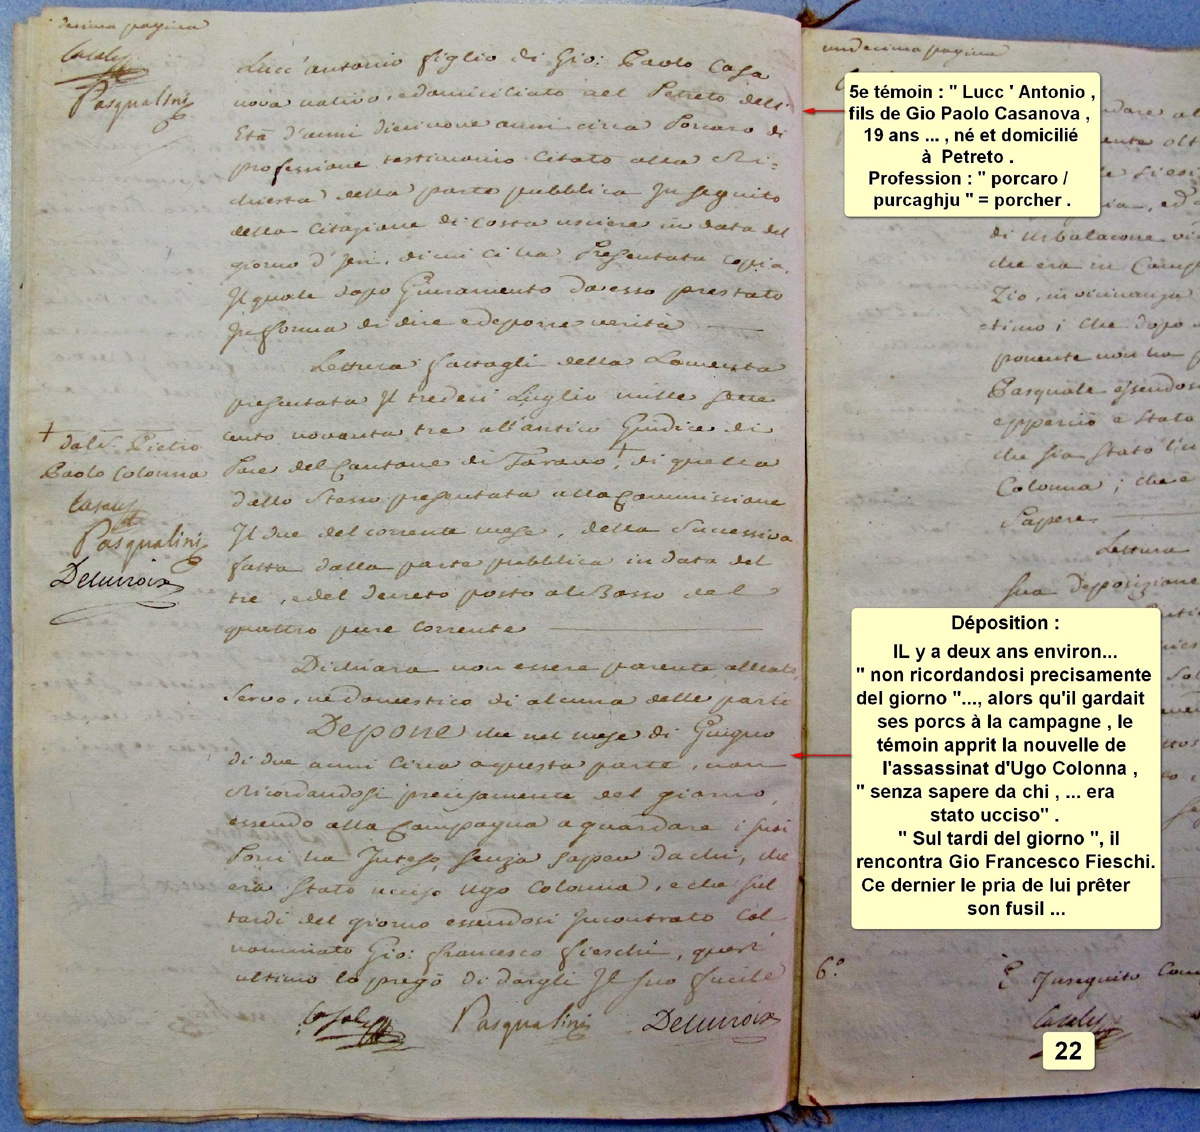 decima pagina
Casalis
Pasqualini
Lucc'antonio figlio di Gio: Paolo Casa
nova nativo, e domiciliato nel Petreto dell'
Età d'anni diecinove anni circa Porcaro di
professione testimonio Citato alla Ri-
chiesta della parte pubblica In seguito
della Citazione di Costa usciere in data del
giorno d'Jeri, di cui ci ha Presentata Copia,
Il quale dopo Giuramento da esso prestato
In forma di dire e deporre verità
Lettura fattagli della Lamenta
presentata Il tredeci Luglio mille sette
cento novanta tre all'antico Giudice di
Pace del Cantone di Taravo, + di quella
dallo Stesso presentata alla Commissione
Il due del corrente mese, della Successiva
fatta dalla parte pubblica in data del
tre, e del decreto posto al Basso del
quattro pure corrente
+ dal Pietro
Paolo Colonna
Casalis
Pasqualini
Delacroix
Dichiara non essere parente alleato,
Servo, ne domestico di alcuna delle parti
Depone che nel mese di Giugno
di due anni circa a questa parte, non
Ricordandosi precisamente del giorno,
essendo alla Campagna a guardare i suoi
Porci ha Inteso, senza sapere da chi, che
era stato ucciso Ugo Colonna, e che sul
tardi del giorno essendosi Incontrato Col
nominato Gio: francesco fieschi, quest'
ultimo lo pregò di dargli Il suo fucile
Casalis Pasqualini Delacroix
undecima pagina
di Urbalacone
che era in Camp
Zio, in vicinanza
che dopo
ponente non ha
Pasquale essendosi
è stato
che sia stato
Colonna; che
Sapere
Lettura
Sua deposizione
6.°
E Inseguito
Casalis
5e témoin : " Lucc ' Antonio ,
fils de Gio Paolo Casanova ,
19 ans ... , né et domicilié
à Petreto .
Profession : " porcaro /
purcaghju " = porcher .
Déposition :
IL y a deux ans environ...
" non ricordandosi precisamente
del giorno "..., alors qu'il gardait
ses porcs à la campagne , le
témoin apprit la nouvelle de
l'assassinat d'Ugo Colonna ,
" senza sapere da chi , ... era
stato ucciso" .
" Sul tardi del giorno ", il
rencontra Gio Francesco Fieschi.
Ce dernier le pria de lui prêter
son fusil ...
22